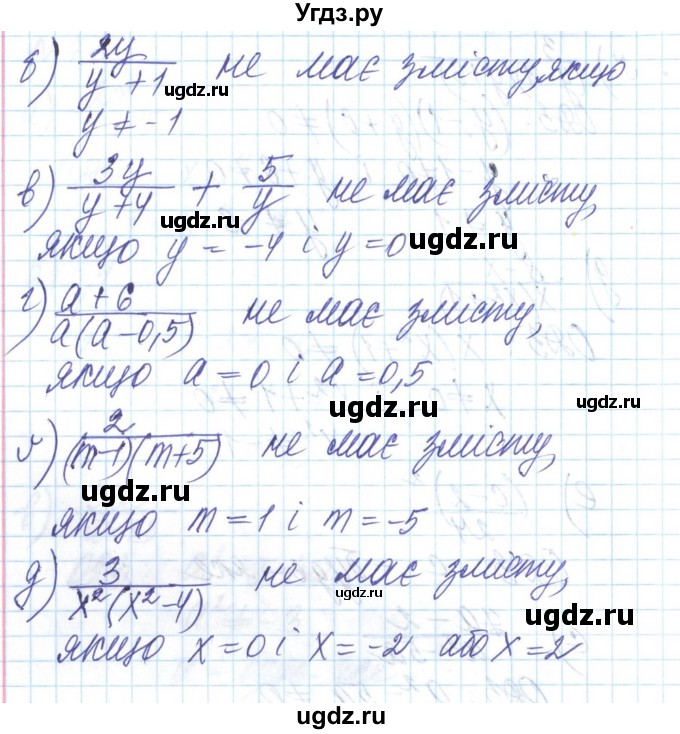 Угдз.ру
б) 2y/(y+1) не має змісту, якщо
y ≠ -1
в) 3y/(y+4) + 5/y не має змісту,
якщо y = -4 і y = 0
г) (a+6)/(a(a-0,5)) не має змісту,
якщо a = 0 і a = 0,5
ґ) 2/((m-1)(m+5)) не має змісту,
якщо m = 1 і m = -5
д) 3/(x²(x²-4)) не має змісту,
якщо x = 0 і x = -2 або x = 2
ugdz.ru
ugdz.ru
ugdz.ru
ugdz.ru
ugdz.ru
ugdz.ru
ugdz.ru
ugdz.ru
ugdz.ru
ugdz.ru
ugdz.ru